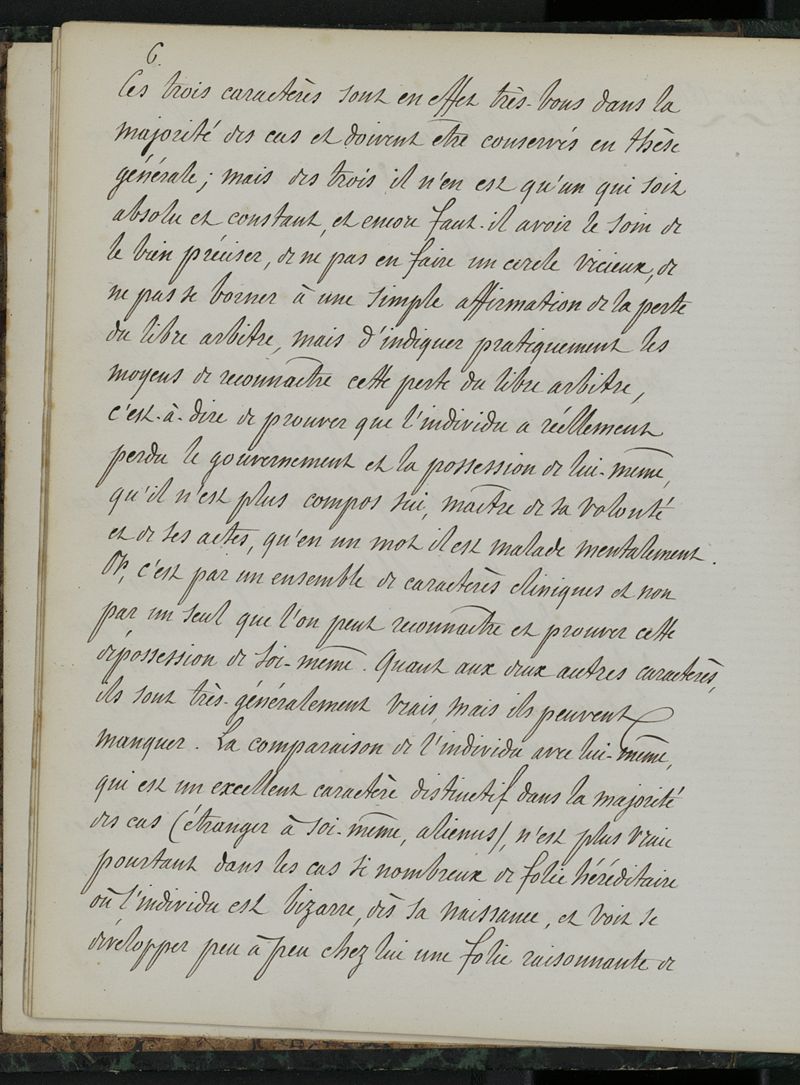 6.
Ces trois caractères sont en effet très-bons dans la
majorité des cas et doivent être conservés en thèse
générale ; mais des trois il n'en est qu'un qui soit
absolu et constant, et encore faut-il avoir le soin de
le bien préciser, de ne pas en faire un cercle vicieux, de
ne pas se borner à une simple affirmation de la perte
du libre arbitre, mais d'indiquer pratiquement les
moyens de reconnaître cette perte du libre arbitre,
c'est-à-dire de prouver que l'individu a réellement
perdu le gouvernement et la possession de lui-même,
qu'il n'est plus compos sui, maître de sa volonté
et de ses actes, qu'en un mot il est malade mentalement.
Or, c'est par un ensemble de caractères cliniques et non
par un seul que l'on peut reconnaître et prouver cette
dépossession de soi-même. Quant aux deux autres caractères,
ils sont très-généralement vrais, mais ils peuvent
manquer. La comparaison de l'individu avec lui-même,
qui est un excellent caractère distinctif dans la majorité
des cas (étranger à soi-même, alienus), n'est plus vraie
pourtant dans les cas si nombreux de folie héréditaire
où l'individu est bizarre, dès sa naissance, et voit se
développer peu à peu chez lui une folie raisonnante de